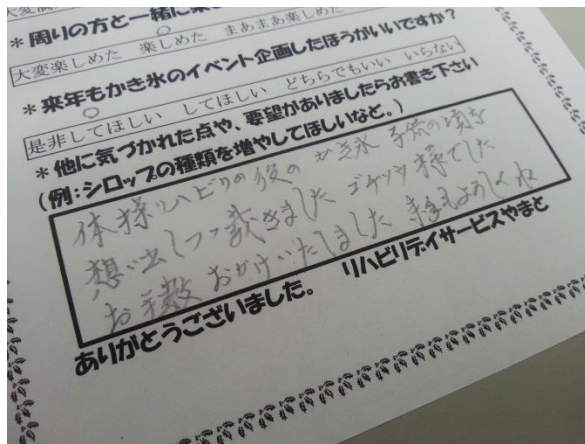 大変満
*周りの方と一緒に楽
大変楽しめた 楽しめた まあまあ楽しめた
*来年もかき氷のイベント企画したほうがいいですか?
是非してほしい してほしい どちらでもいい いらない
*他に気づかれた点や、要望がありましたらお書き下さい
(例:シロップの種類を増やしてほしいなど。)
リハビリの後の かき氷 子供の頃を
想い出しつつ戴きました ゴチソウ様でした
お手数おかけいたしました
ありがとうございました。 リハビリデイサービスやまと